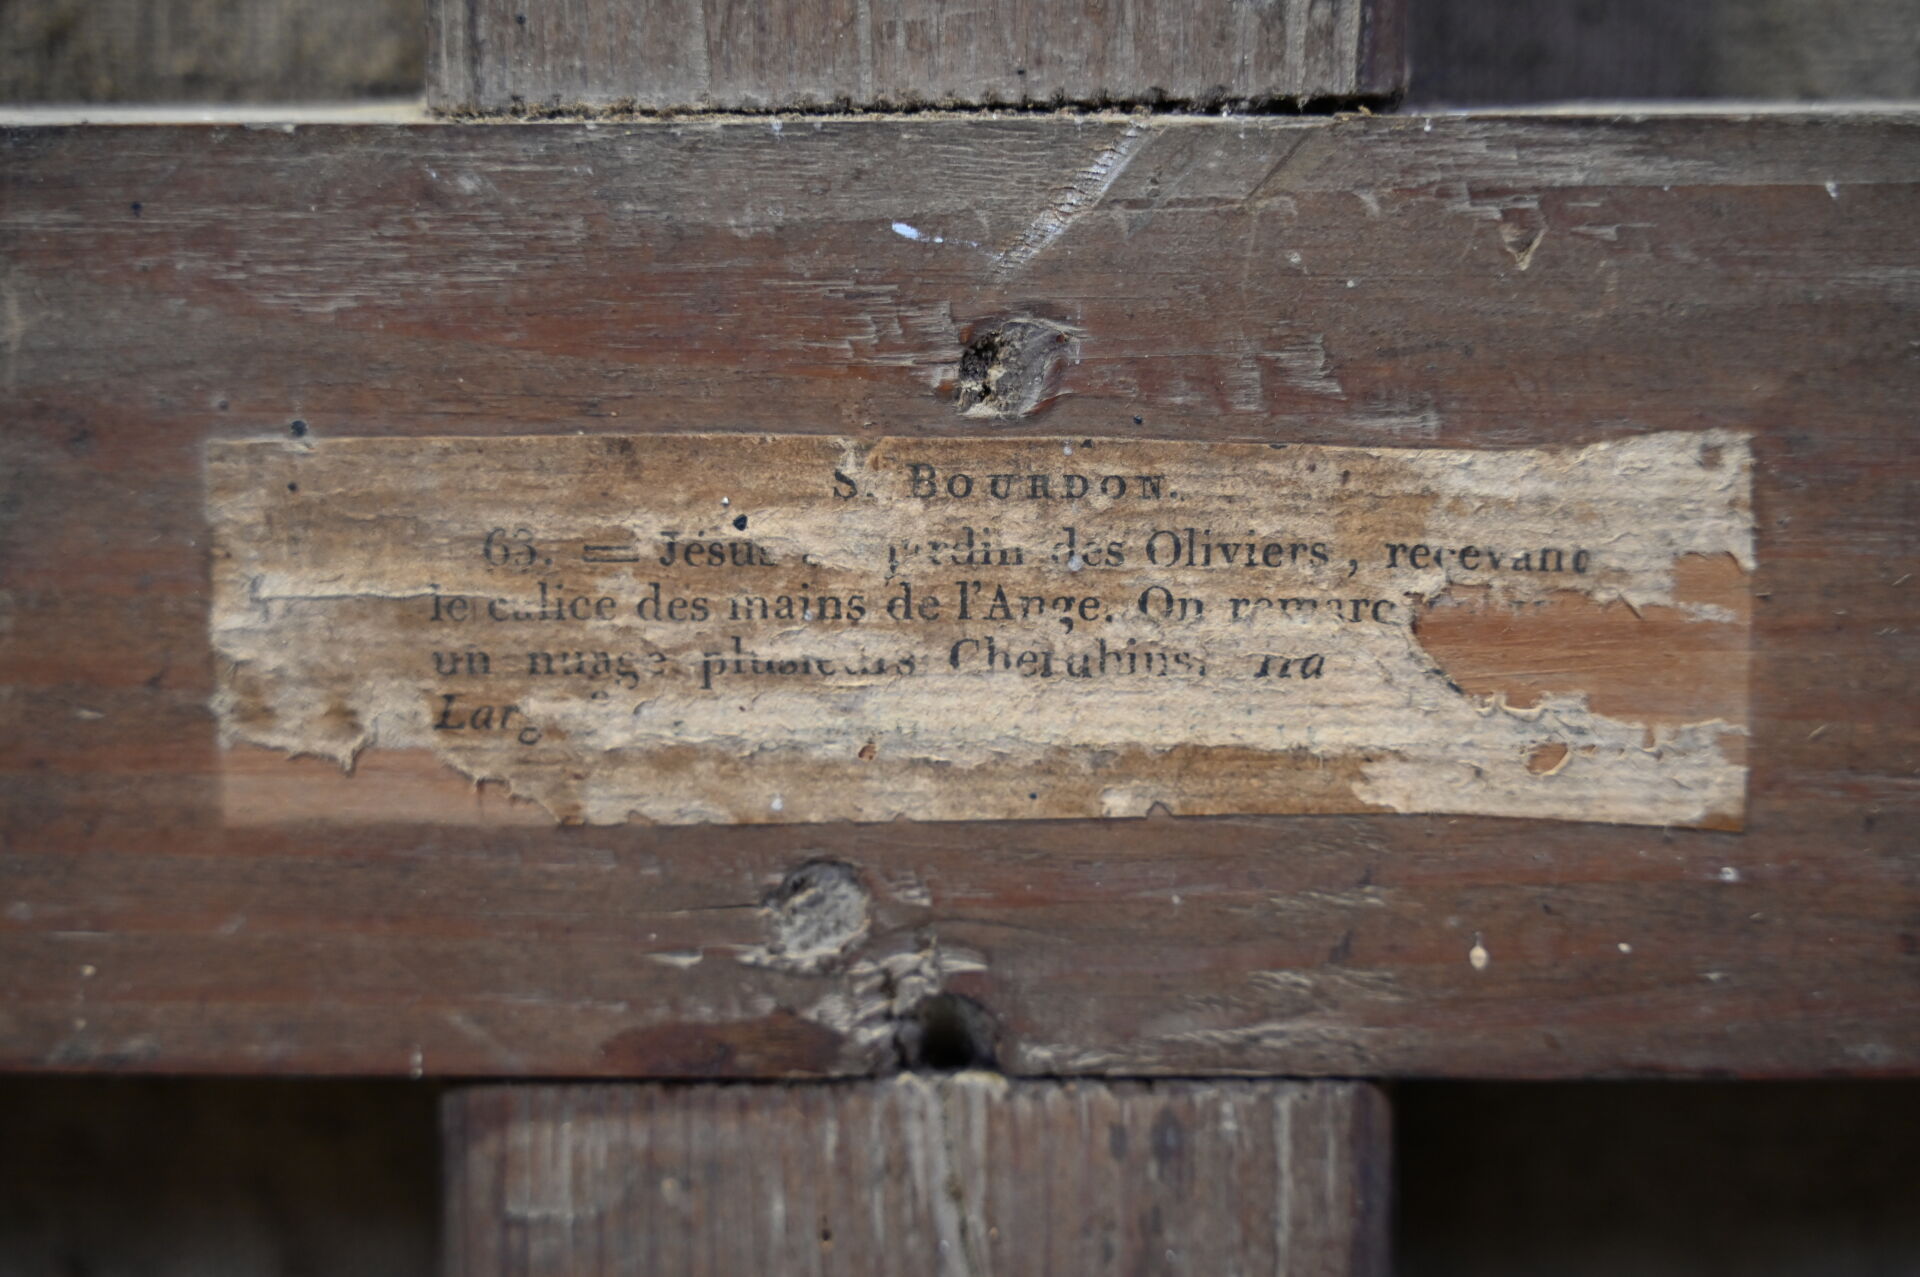 S. BOURDON.
63. = Jésus jardin des Oliviers, recevant
le calice des mains de l'Ange. On
un nuage plusieurs Cherubins.